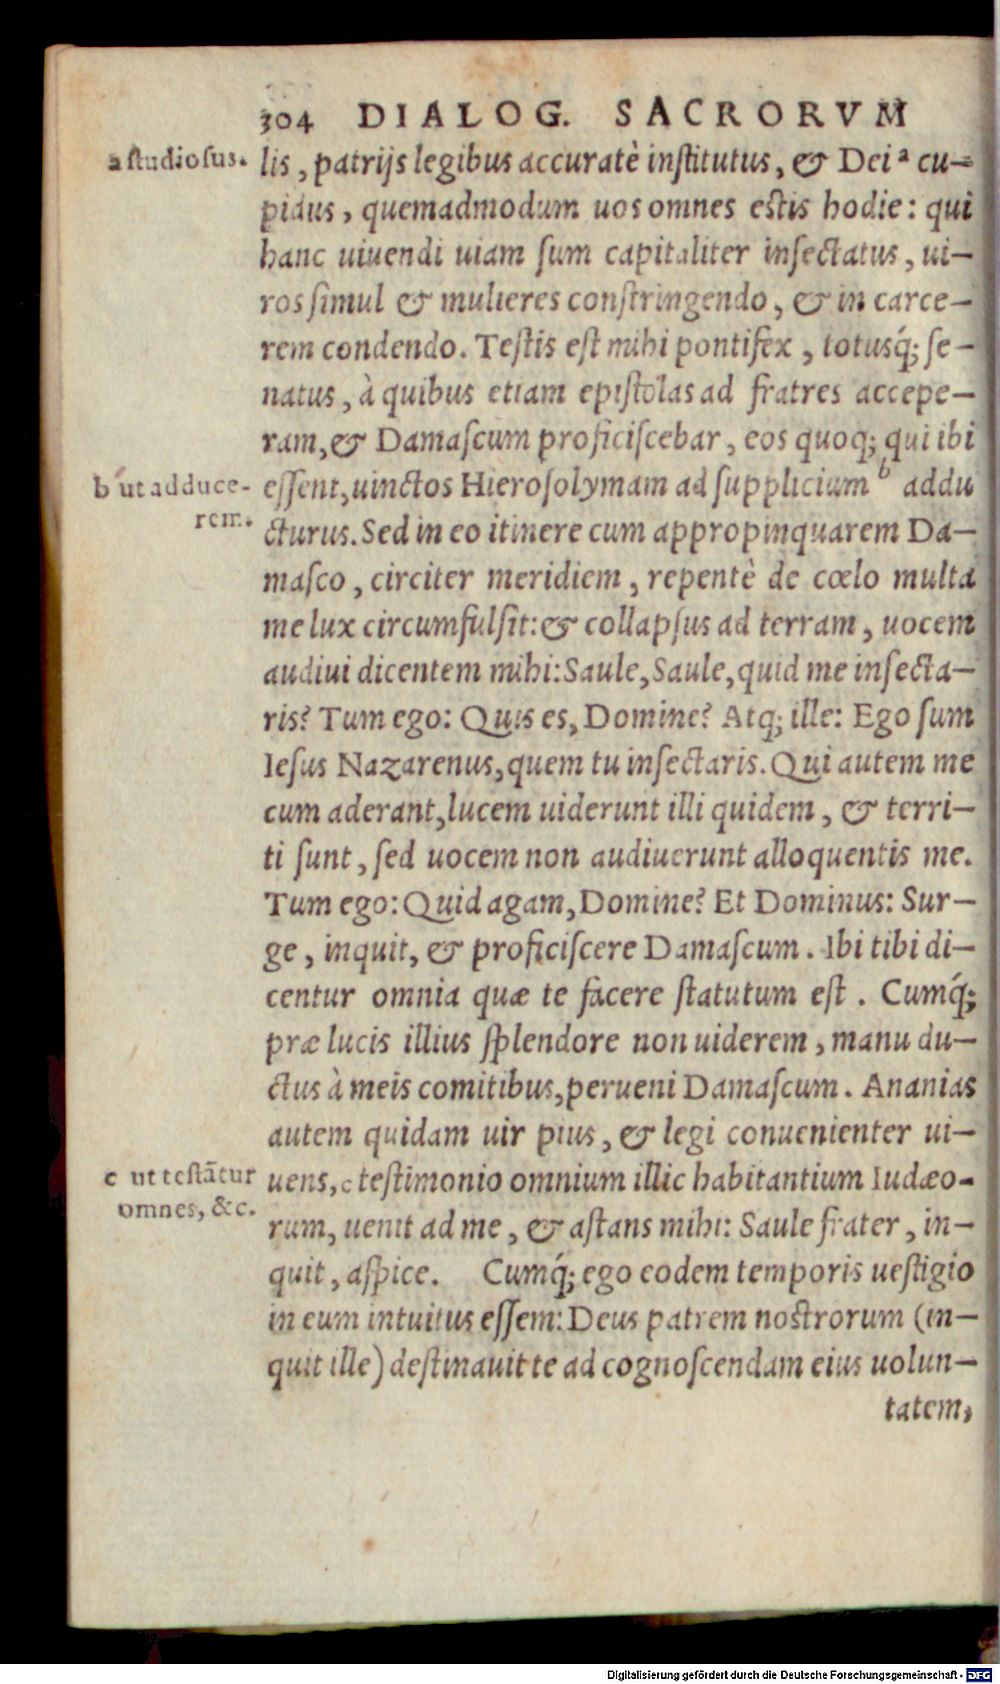 304 DIALOG. SACRORVM
a studiosus.
lis, patrijs legibus accuratè institutus, & Dei a cu-
pidus, quemadmodum uos omnes estis hodie: qui
hanc uiuendi uiam sum capitaliter insectatus, ui-
ros simul & mulieres constringendo, & in carce-
rem condendo. Testis est mihi pontifex, totusq́; se-
natus, à quibus etiam epistolas ad fratres accepe-
ram, & Damascum proficiscebar, eos quoq; qui ibi
b ut adduce-
rem.
essent, uinctos Hierosolymam ad supplicium b addu
cturus. Sed in eo itinere cum appropinquarem Da-
masco, circiter meridiem, repentè de cœlo multa
me lux circumfulsit: & collapsus ad terram, uocem
audiui dicentem mihi: Saule, Saule, quid me insecta-
ris? Tum ego: Quis es, Domine? Atq; ille: Ego sum
Iesus Nazarenus, quem tu insectaris. Qui autem me
cum aderant, lucem uiderunt illi quidem, & terri-
ti sunt, sed uocem non audiuerunt alloquentis me.
Tum ego: Quid agam, Domine? Et Dominus: Sur-
ge, inquit, & proficiscere Damascum. Ibi tibi di-
centur omnia quæ te facere statutum est. Cumq́;
præ lucis illius splendore non uiderem, manu du-
ctus à meis comitibus, perueni Damascum. Ananias
autem quidam uir pius, & legi conuenienter ui-
c ut testātur
omnes, &c.
uens, c testimonio omnium illic habitantium Iudæo-
rum, uenit ad me, & astans mihi: Saule frater, in-
quit, aspice. Cumq́; ego eodem temporis uestigio
in eum intuitus essem: Deus patrem nostrorum (in-
quit ille) destinauit te ad cognoscendam eius uolun-
tatem,
Digitalisierung gefördert durch die Deutsche Forschungsgemeinschaft - DFG